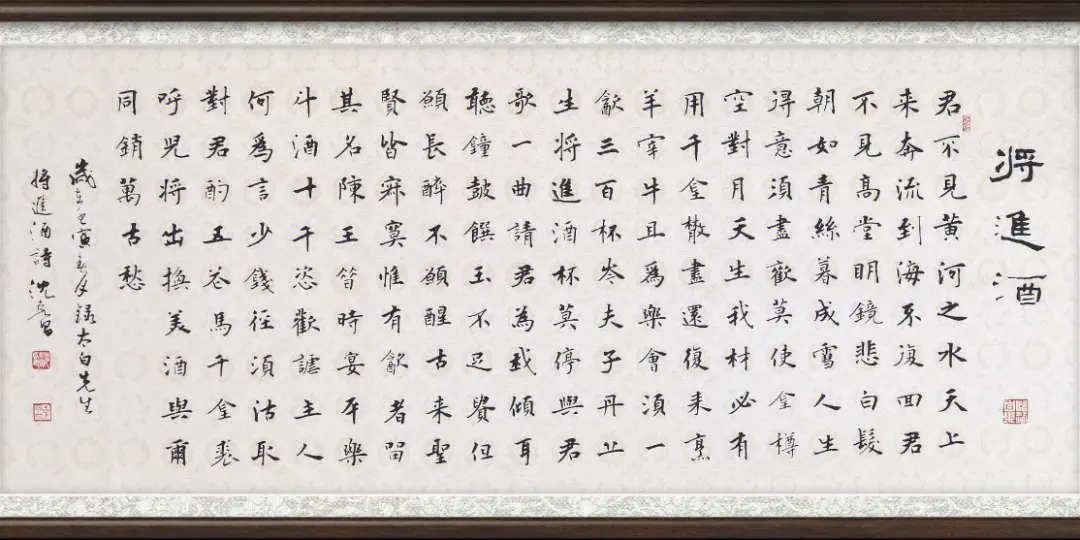 将進酒
君不見黃河之水天上
来奔流到海不復回君
不見高堂明鏡悲白髮
朝如青絲暮成雪人生
得意須盡歡莫使金樽
空對月天生我材必有
用千金散盡還復来烹
羊宰牛且爲樂會須一
飲三百杯岑夫子丹丘
生将進酒杯莫停與君
歌一曲請君為我傾耳
聽鐘鼓饌玉不足貴但
願長醉不願醒古来聖
賢皆寂寞惟有飲者留
其名陳王昔時宴平樂
斗酒十千恣歡謔主人
何爲言少錢徑須沽取
對君酌五花馬千金裘
呼兒将出換美酒與爾
同銷萬古愁
歲寅月録太白先生
将進酒詩沈